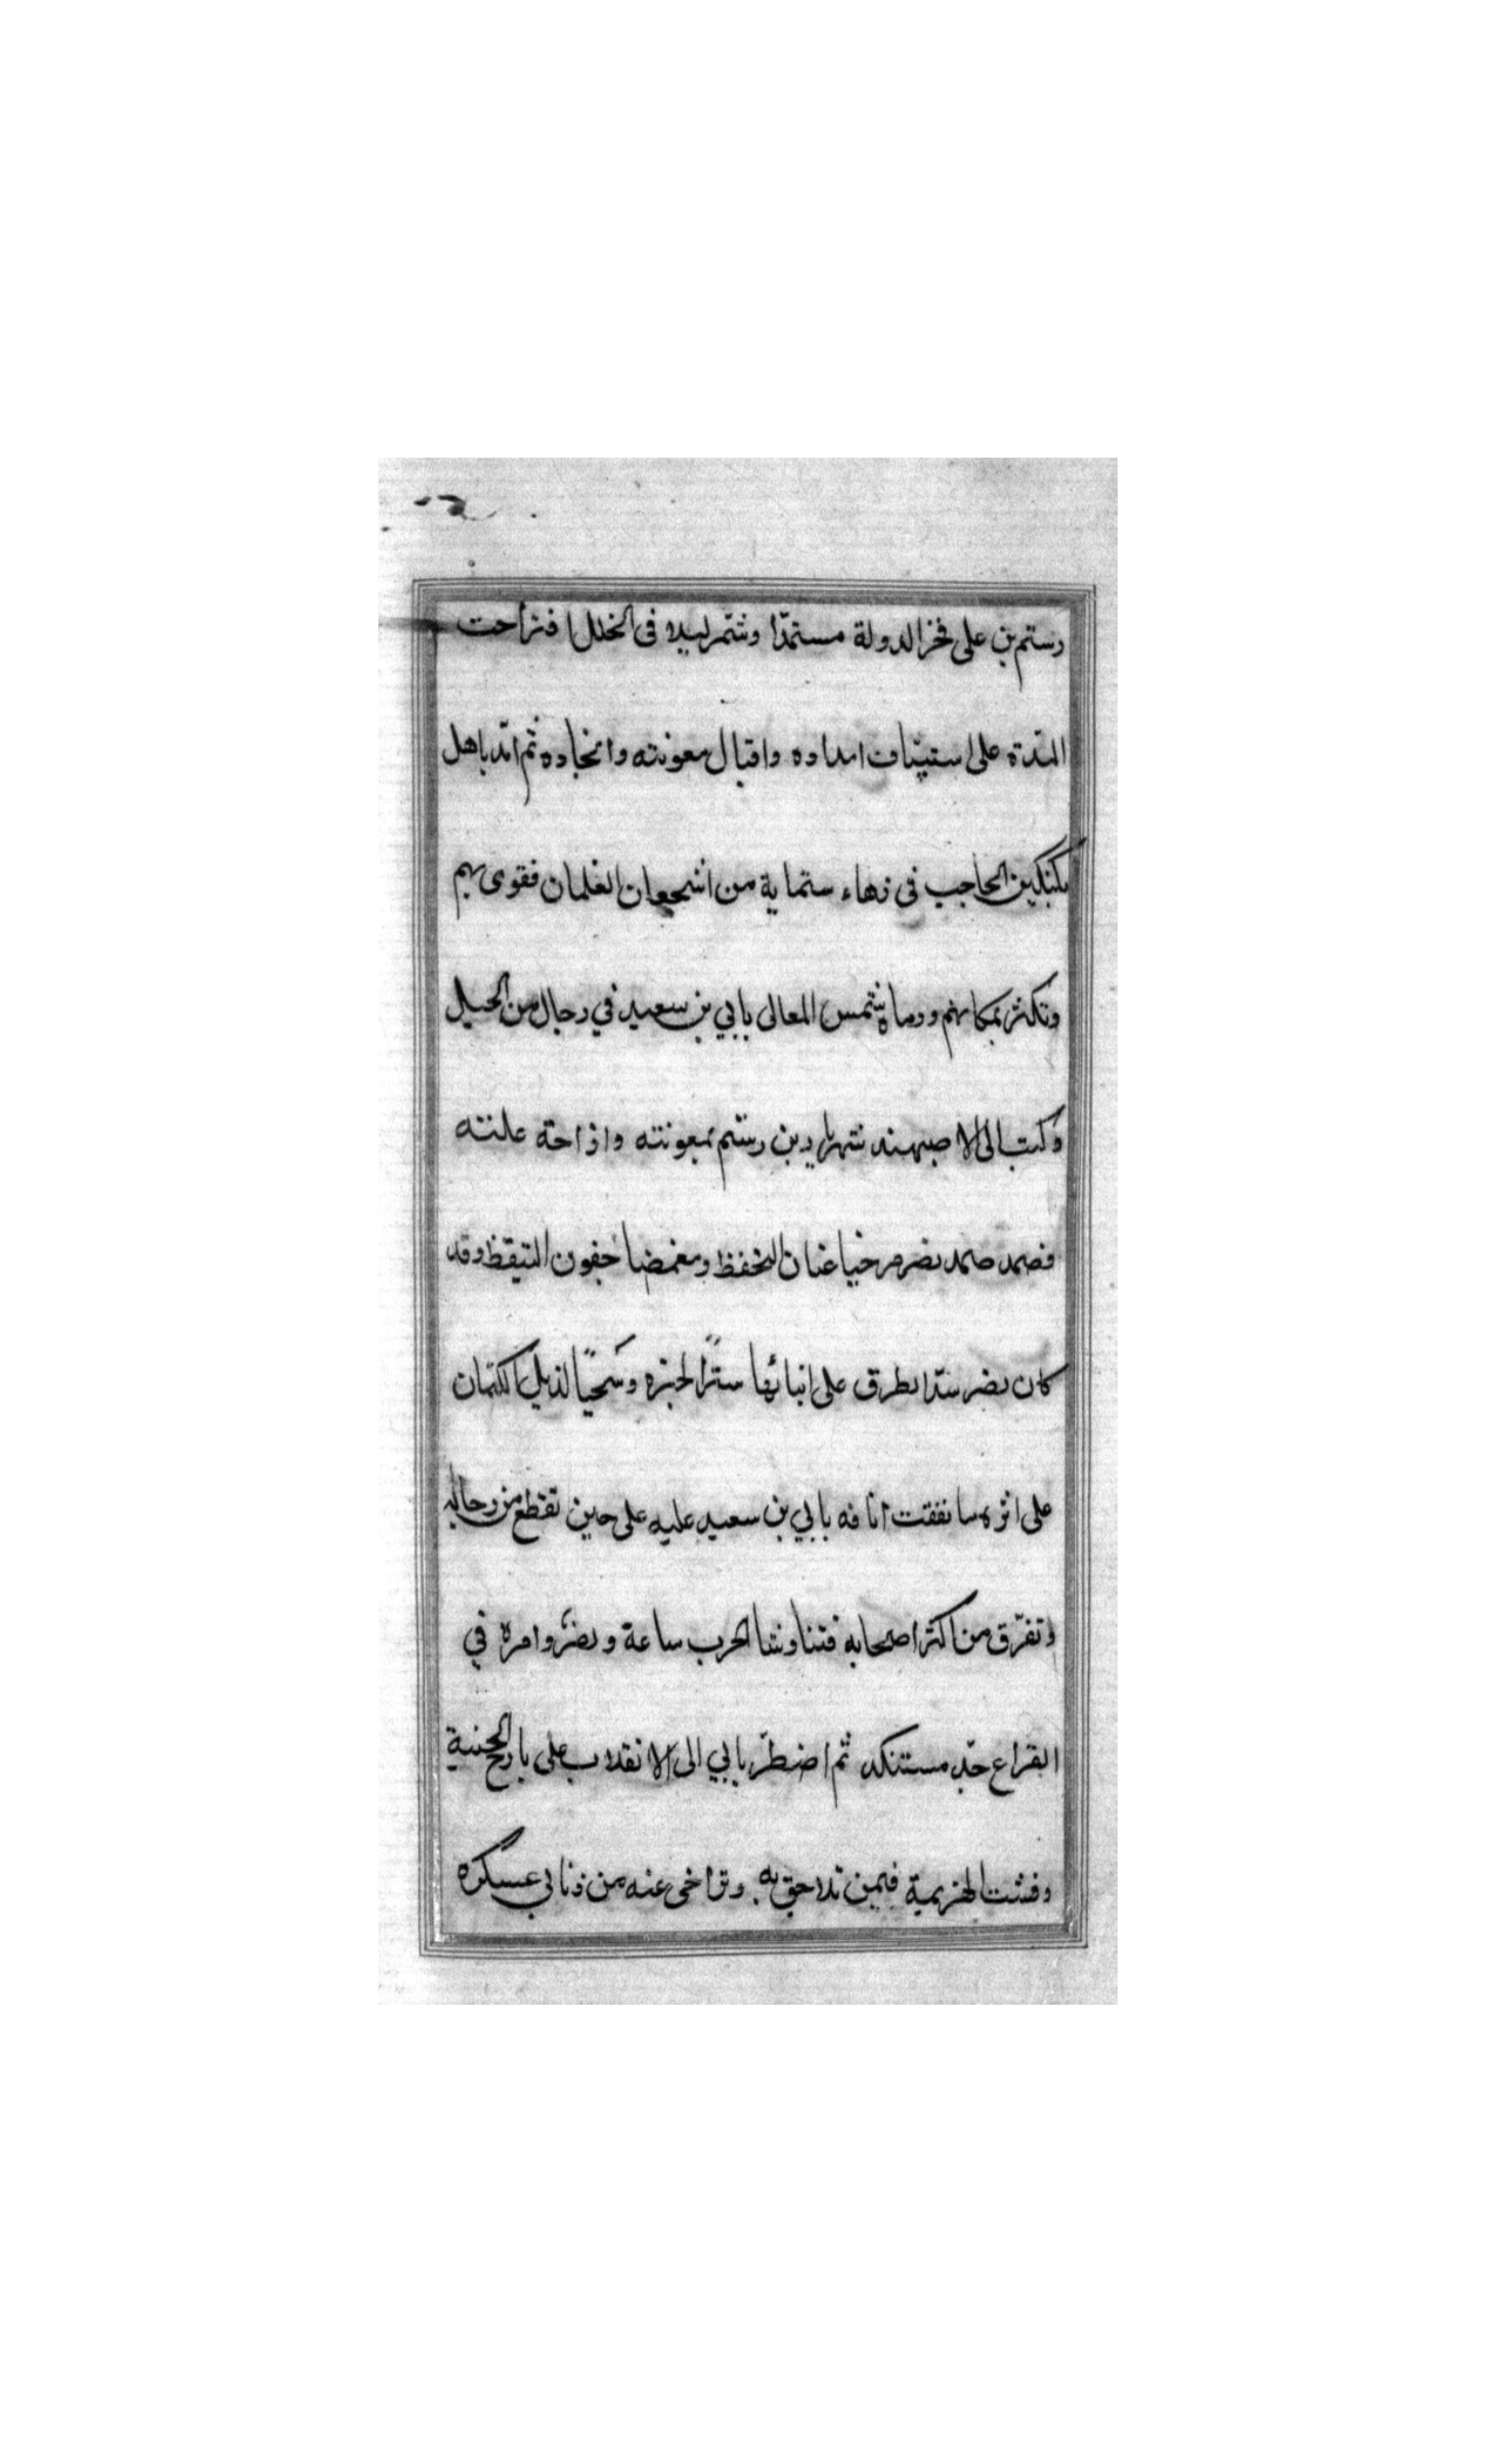 رستم بن على فخر الدولة مستمدّا وشمّر ليلا فى الخلل فتراحت
المدّة على استيناف امداده واقبال معونته وانجاده ثم امّد باهل
بكتكين الحاجب فى زهاء ستماية من اشجعان الغلمان فقوى بهم
وتكثر بمكانهم ورماه شمس المعالى بابي بن سعيد في رجال من الجيل
وكتب الى الاصبهبد شهريار بن رستم بمعونته وازاحة علته
فصمد صمد نصر مرخيا عنان التحفظ ومغمضا جفون التيقظ وقد
كان نصر سدّ الطرق على انبائها سترًا لخبره وسحبًا لذيل الكتمان
على اثره فاتفقت انافه بابي بن سعيد عليه على حين تقطع من رجاله
وتفرّق من اكثر اصحابه فتناوشا الحرب ساعة ونصر وامره في
القراع حدّ مستنكد ثم اضطرّ بابي الى الانقلاب على بارح الخيبة
وفشت الهزيمة فيمن تلاحق به وتراخى عنه من ذنابي عسكره